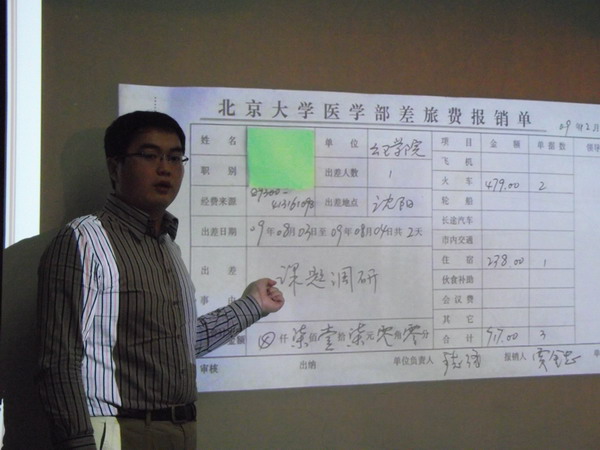 北京大学医学部差旅费报销单
09年2月
姓名 单位 公卫学院 项目 金额 单据数 领导
职别 出差人数 1 飞机
火车 479.00 2
经费来源 出差地点 沈阳 轮船
长途汽车
出差日期 09年08月03日至09年08月04日共2天 市内交通
住宿 238.00 1
出差 课题调研 伙食补助
事由 会议费
其它
金额 ⊗仟柒佰壹拾柒元零角零分 合计 717.00 3
审核 出纳 单位负责人 报销人